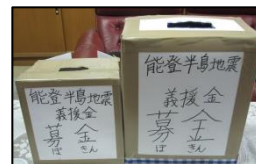 能登半島地震
義援金
募金
ぼきん
能登半島地震
義援金
募金
ぼきん